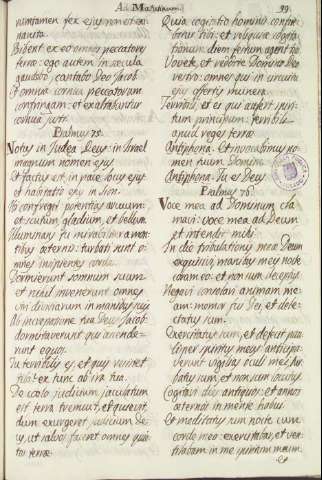 Ad Matutinum
99
numtamen fex ejus non est exi
nanita.
Bibent ex eo omnes peccatores
terræ: ego autem in sæcula
gaudebo, cantabo Deo Jacob
Et omnia cornua peccatorum
confringam: et exaltabuntur
cornua justi.
Psalmus 75.
Notus in Judea Deus: in Israel
magnum nomen ejus
Et factus est in pace locus ejus
et habitatio ejus in Sion.
Ibi confregit potentias arcuum:
et scutum gladium, et bellum.
Illuminans tu mirabiliter a mon
tibus æternis: turbati sunt o-
mnes insipientes corde.
Dormierunt somnum suum
et nihil invenerunt omnes
viri divitiarum in manibus suis
Ab increpatione tua Deus Jacob:
dormitaverunt qui ascende-
runt equos.
Tu terribilis es, et quis resistet
tibi: ex tunc ab ira tua.
De cœlo judicium jaculatum
est terra tremuit, et quievit,
dum exurgeret judicium De-
us, ut salvos faceret omnes qua-
tos terræ.
Quia cogitatio hominis confite
bitur tibi: et reliquiæ cogita-
tionum diem festum agent tibi
Vovete, et reddite Domino Deo
vestro: omnes qui in circuitu
ejus afertis munera.
Terribili, et ei qui aufert spiri-
tum principum: terribili
apud reges terræ.
Antiphona. Et invocabimus no-
men tuum Domine.
Antiphona. Tu es Deus
Psalmus 76.
Voce mea ad Dominum cla
mavi: voce mea ad Deum
et intendit mihi.
In die tribulationis meæ Deum
exquisivi, manibus meis nocte
coram eo: et non sum deceptus.
Negavi consolari animam me-
am: memor fui Dei, et dele-
ctatus sum.
Exercitatus sum, et defecit pau
liper spiritus meus anticipa-
verunt vigilias oculi mei, tur-
batus sum, et non sum locutus
Cogitavi dies antiquos: et annos
æternos in mente habui.
Et meditatus sum nocte cum
corde meo: exercitabar, et ven
tilabam in me spiritum meum.